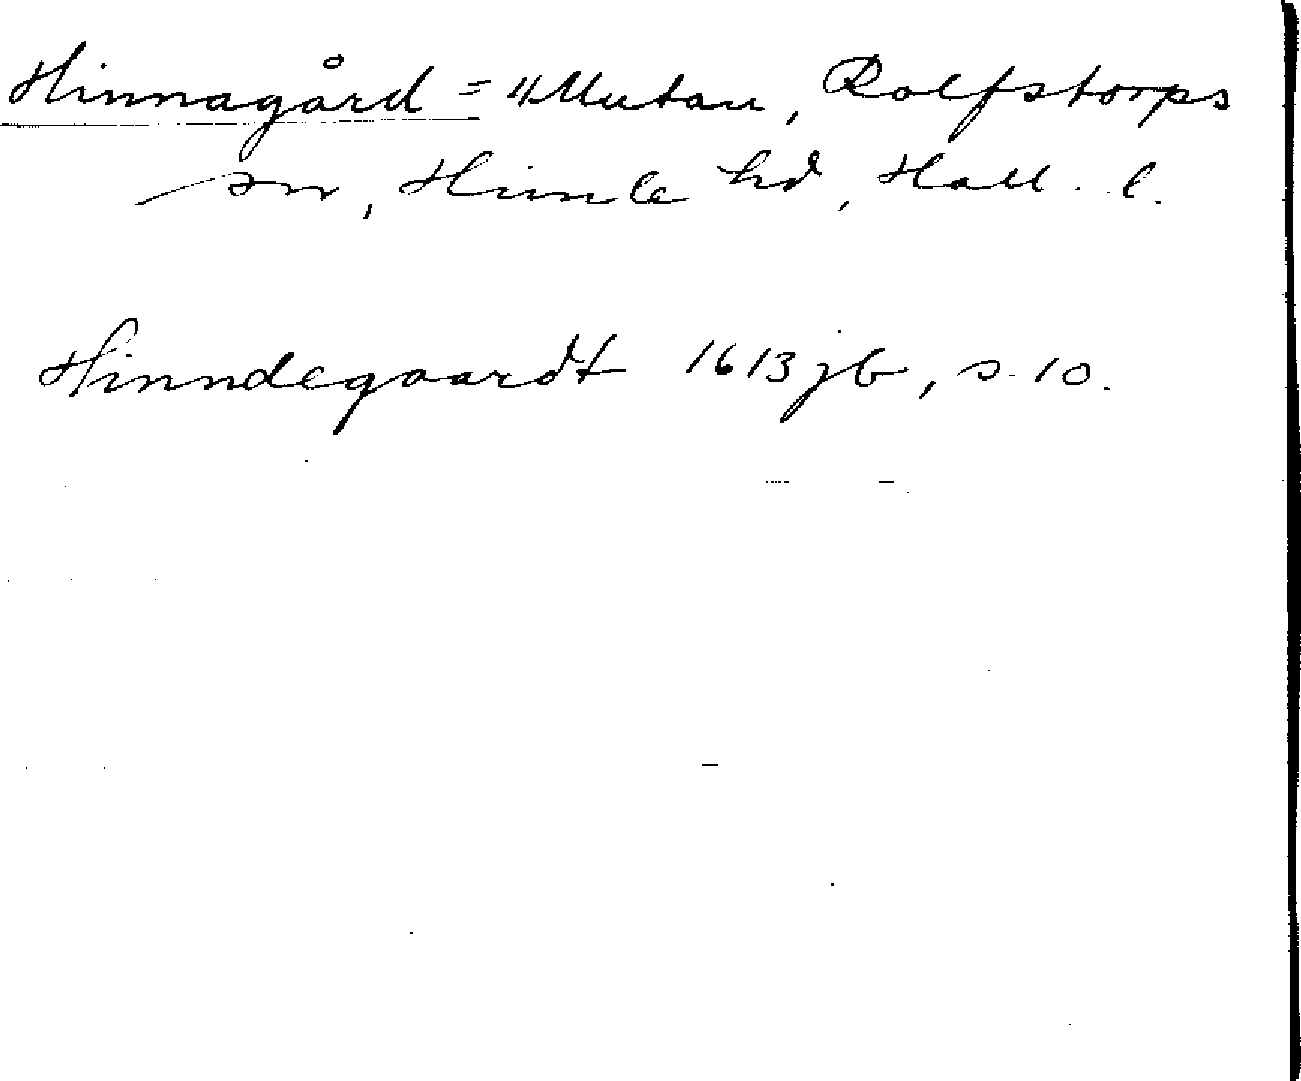 Hinnagård = "Mutau, Rolfstorps
sn, Himle hd, Hall. l.
Hinndegaardt 1613 jb, s. 10.